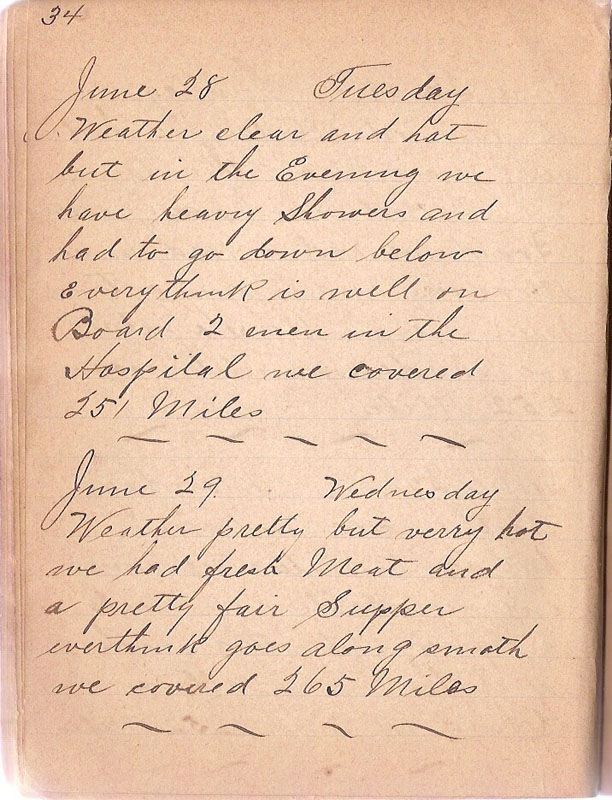 34
June 28 Tuesday
Weather clear and hot
but in the Evening we
have heavy Showers and
had to go down below
Everythink is well on
Board 2 men in the
Hospital we covered
251 Miles
June 29. Wednesday
Weather pretty but verry hot
we had fresh Meat and
a pretty fair Supper
everthink goes along smoth
we covered 265 Miles